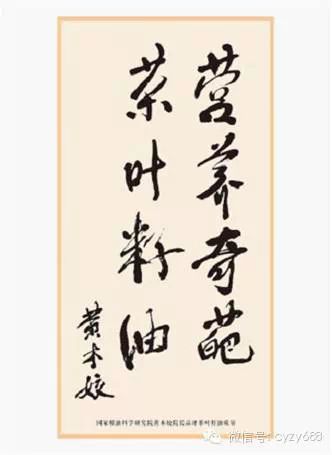 营养奇葩
茶叶籽油
黄木姣
国家粮油科学研究院黄木姣院长品评茶叶籽油题写
微信号: cyzy688